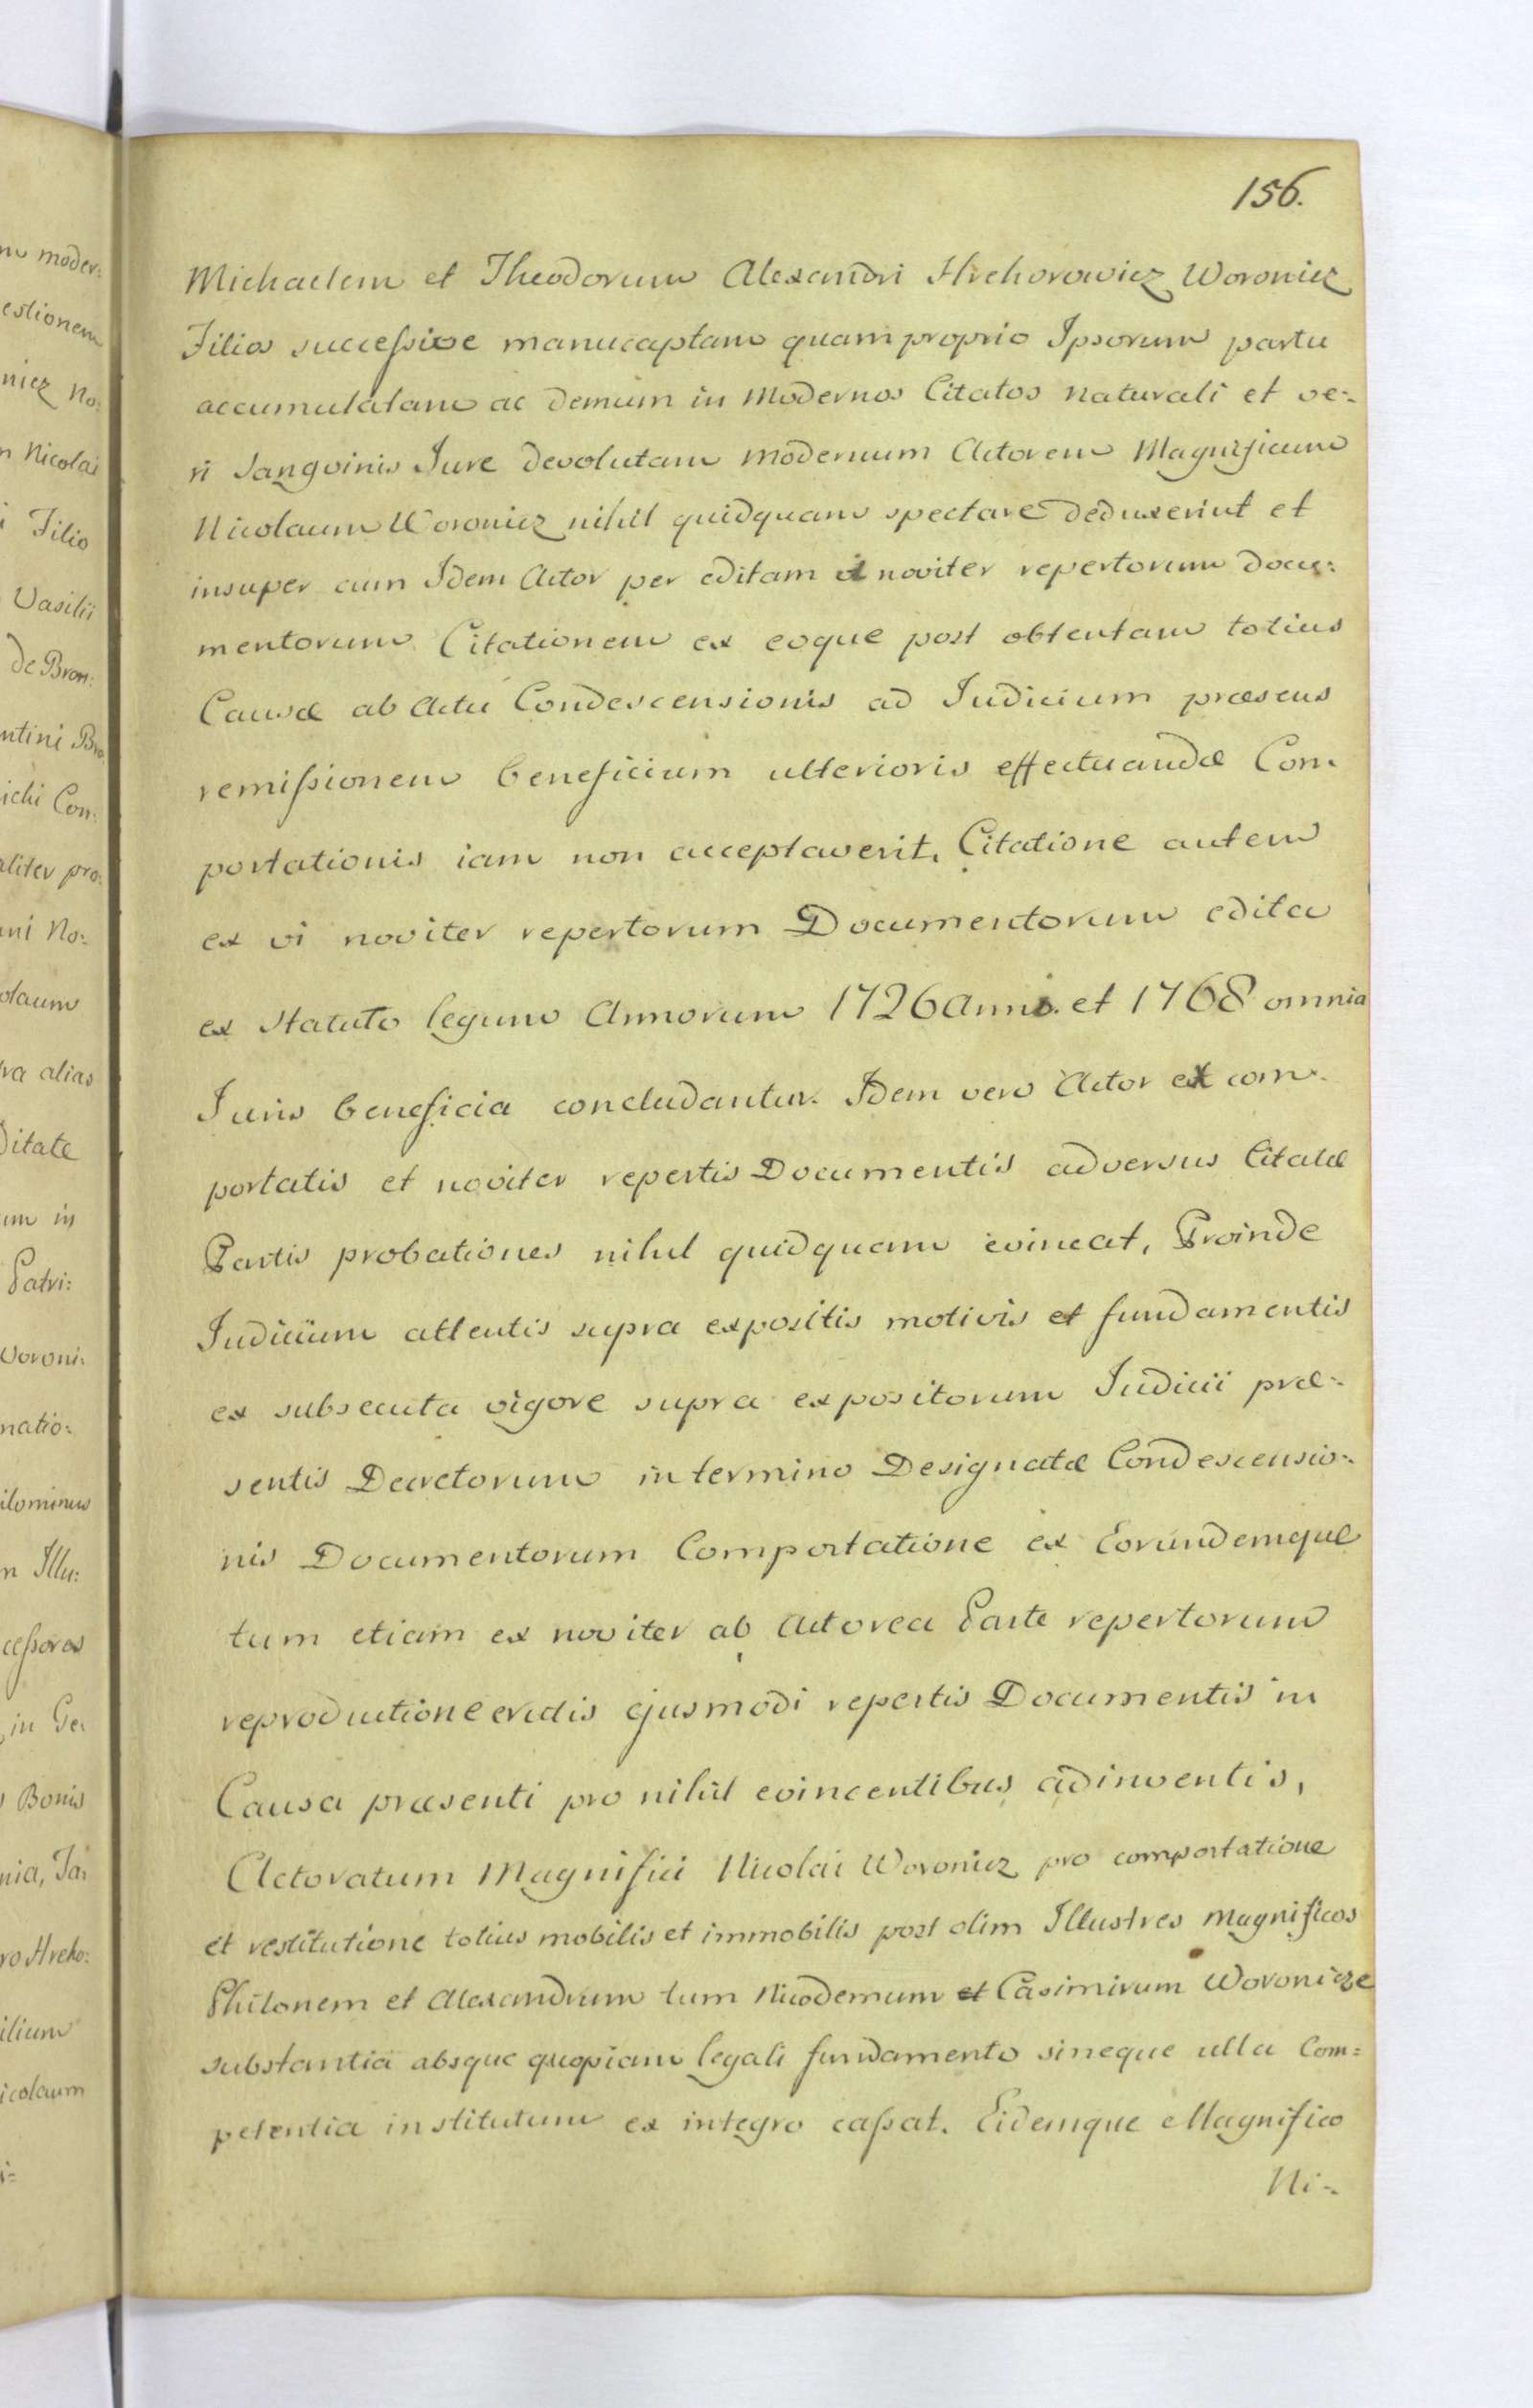 156.
Michaelem et Theodorum Alexandri Hrehorowicz Woronicz
Filios successive manucaptam quam proprio Ipsorum partu
accumulatam ac demum in Modernos Citatos naturali et ve-
ri Sangvinis Jure devolutam modernum Actorem Magnificum
Nicolaum Woronicz nihil quidquam spectare deduxerint et
insuper cum Idem Actor per editam noviter repertorum Docu:
mentorum Citationem ex eoque post obtentam totius
Causæ ab Actu Condescensionis ad Judicium præsens
remissionem beneficium ulterioris effectuandæ Com-
portationis iam non acceptaverit, Citatione autem
ex vi noviter repertorum Documentorum edita
ex Statuto legum Annorum 1726 Anno. et 1768 omnia
Juris beneficia concludantur. Idem vero Actor ex com-
portatis et noviter repertis Documentis adversus Citatæ
Partis probationes nihil quidquam evincat, Proinde
Judicium attentis supra expositis motivis et fundamentis
ex subsecuta vigore supra expositorum Judicii præ-
sentis Decretorum in termino Designatæ Condescensio-
nis Documentorum Comportatione ex Eorundemque
tum etiam ex noviter ab Actorea Parte repertorum
reproductione evictis ejusmodi repertis Documentis in
Causa præsenti pro nihil evincentibus adinventis,
Actoratum Magnifici Nicolai Woronicz pro comportatione
et restitutione totius mobilis et immobilis post olim Illustres Magnificos
Philonem et Alexandrum tum Nicodemum et Casimirum Woronicze
substantia absque quopiam legali fundamento sineque ulla Com=
petentia institutum ex integro cassat. Eidemque Magnifico
Ni-